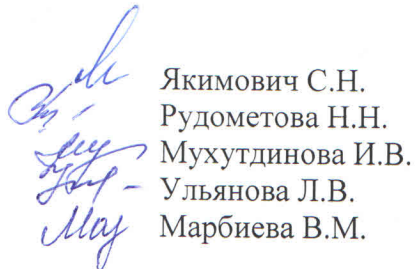 Якимович С.Н.
Рудометова Н.Н.
Мухутдинова И.В.
Ульянова Л.В.
Марбиева В.М.